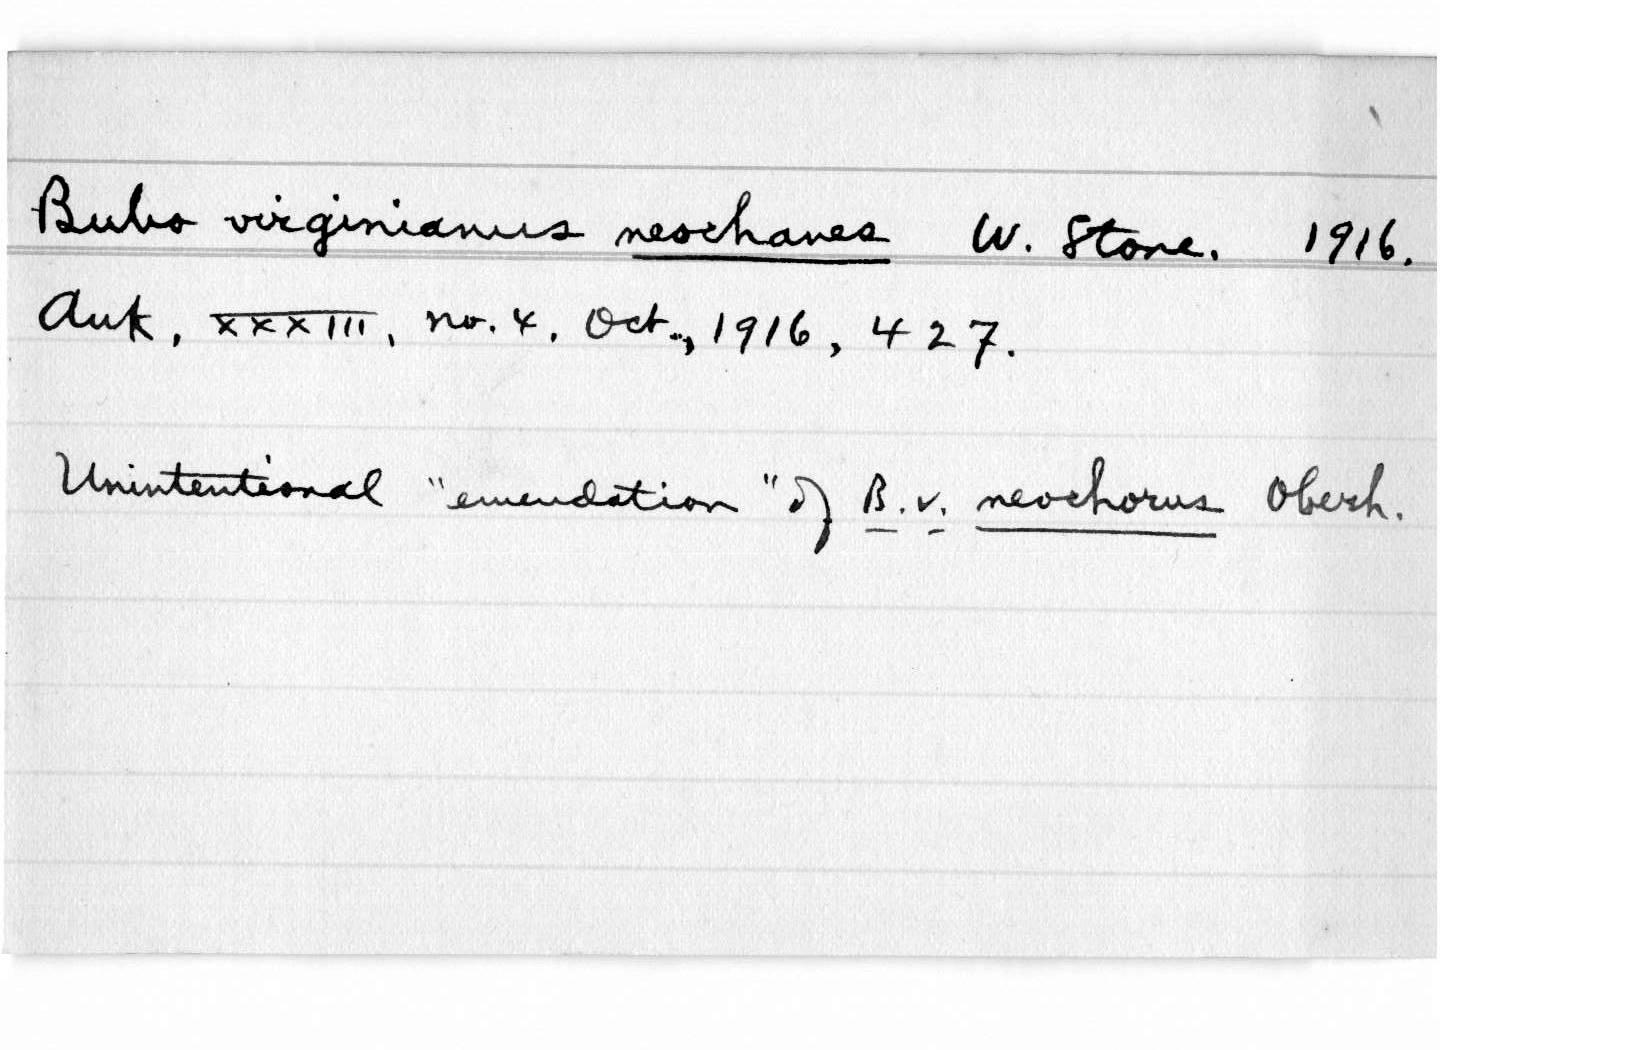 Bubo virginianus neochanes W. Stone. 1916.
Auk, XXXIII, no. 4, Oct., 1916, 427.
Unintentional "emendation" of B. v. neochorus Oberh.